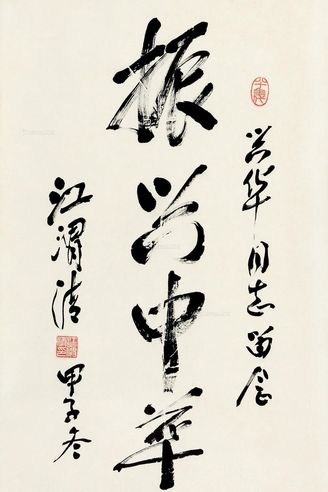 兴华同志留念
振兴中华
江渭清
甲子冬